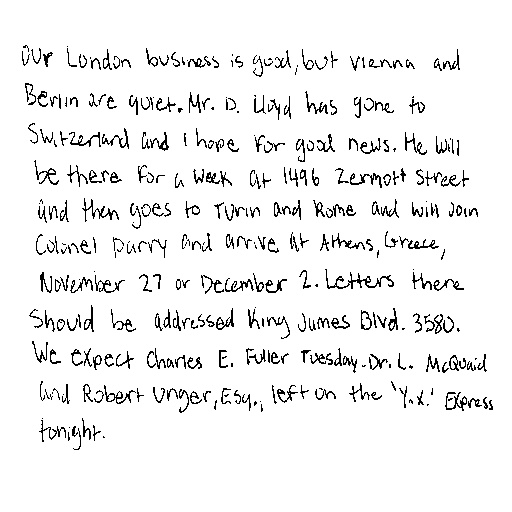 Our London business is good, but vienna and
Berlin are quiet. Mr. D. Lloyd has gone to
Switzerland and I hope for good news. He will
be there for a week at 1496 Zermott Street
and then goes to Turin and Rome and will join
Colonel parry and arrive at Athens, Greece,
November 27 or December 2. Letters there
should be addressed King James Blvd. 3580.
We expect Charles E. Fuller Tuesday. Dr. L. McQuaid
and Robert Unger, Esq., left on the 'Y.X.' Express
tonight.